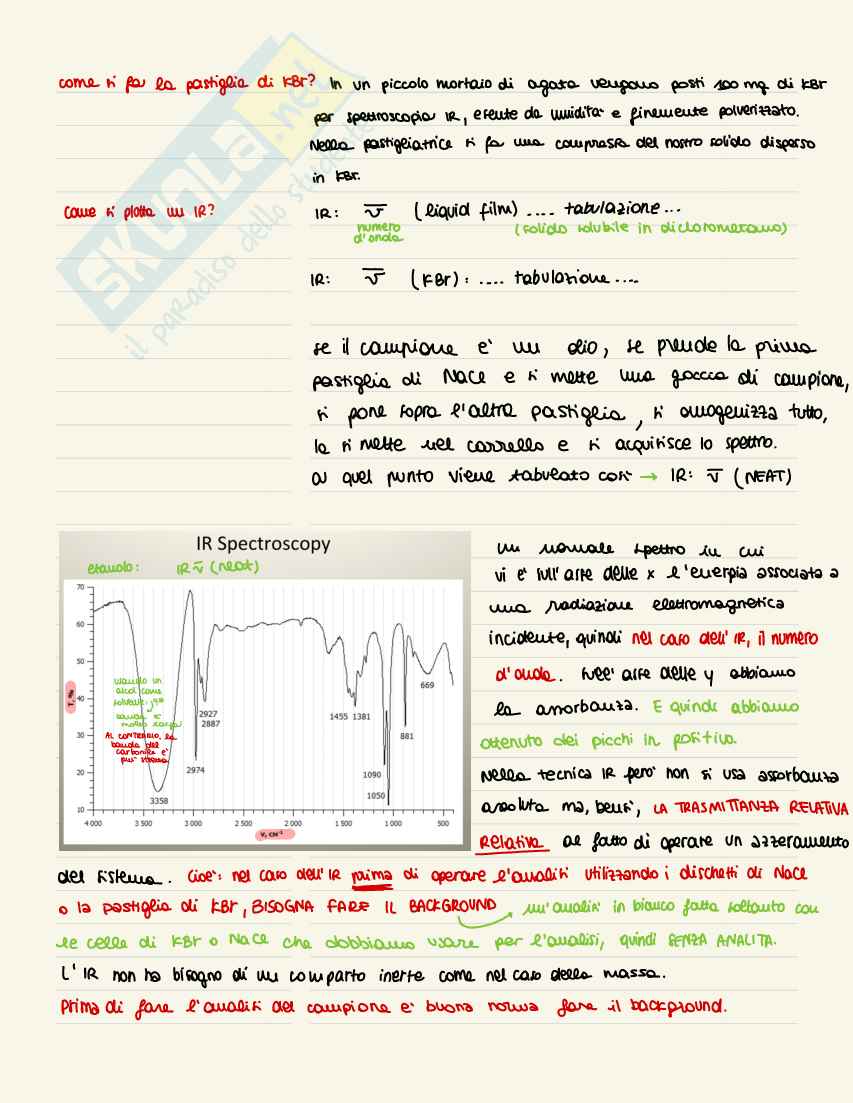 come si fa la pastiglia di KBr? In un piccolo mortaio di agata vengono posti 100 mg di KBr
per spettroscopia IR, esente da umidità e finemente polverizzato.
Nella pastigliatrice si fa una compressa del nostro solido disperso
in KBr.
Come si plotta un IR? IR: ν̅ (liquid film) .... tabulazione...
numero (solido solubile in diclorometano)
d'onda
IR: ν̅ (KBr): .... tabulazione ....
se il campione e' un olio, se prende la prima
pastiglia di NaCl e si mette una goccia di campione,
si pone sopra l'altra pastiglia, si omogenizza tutto,
la si mette nel carrello e si acquisisce lo spettro.
a quel punto viene tabulato così → IR: ν̅ (NEAT)
IR Spectroscopy
etanolo: IR ν̅ (neat)
T, %
70
60
50
40
30
20
10
alcol come
AL CONTRARIO, la
banda del
carbonile e'
più stretta
3358
2974
2927
2887
1455 1381
1090
1050
881
669
4 000 3 500 3 000 2 500 2 000 1 500 1 000 500
ν, cm⁻¹
un normale spettro in cui
vi e' sull'asse delle x l'energia associata a
una radiazione elettromagnetica
incidente, quindi nel caso dell'IR, il numero
d'onda. sull'asse delle y abbiamo
la assorbanza. E quindi abbiamo
ottenuto dei picchi in positivo.
Nella tecnica IR però non si usa assorbanza
assoluta ma, bensì, LA TRASMITTANZA RELATIVA
Relativa al fatto di operare un azzeramento
del sistema. Cioè: nel caso dell'IR prima di operare l'analisi utilizzando i dischetti di NaCl
o la pastiglia di KBr, BISOGNA FARE IL BACKGROUND → un'analisi in bianco fatta soltanto con
le celle di KBr o NaCl che dobbiamo usare per l'analisi, quindi SENZA ANALITA.
L'IR non ha bisogno di un comparto inerte come nel caso della massa.
Prima di fare l'analisi del campione e' buona norma fare il background.
SKUOLA.net
il paradiso dello studente